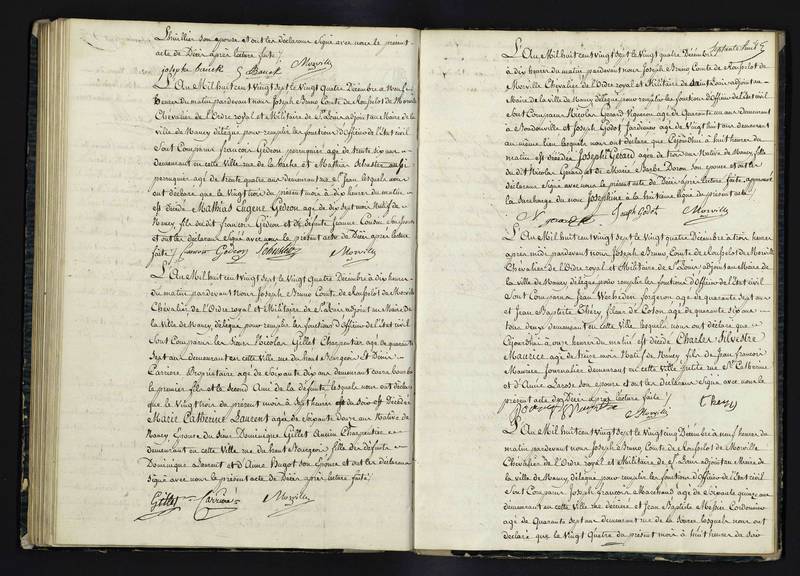 Lhuillier son épouse et ont les déclarans signé avec nous le présent
acte de Décès après lecture faite /
Joseph Banck Banck Morville
L'An Mil huit cent vingt sept le Vingt Quatre Décembre à neuf
heures du matin pardevant nous Joseph Bruno Comte de Rousselot de Morville
Chevalier de l'Ordre royal et Militaire de St Louis adjoint au Maire de la
Ville de Nancy délégué pour remplir les fonctions d'Officier de l'état civil
Sont Comparus françois Gédeon perruquier agé de trente six ans
demeurant en cette Ville rue de la hache et Mathias Schuster aussi
perruquier agé de trente quatre ans demeurant rue St Jean lesquels nous
ont déclaré que le Vingt trois du présent mois à dix heures du matin
est décédé Mathias Eugene Gédeon agé de dix sept mois Natif de
Nancy, fils du dit françois Gédeon et de défunte Jeanne Cousin son épouse
et ont les déclarans signé avec nous le présent acte de Décès après lecture
faite / Gédeon Schuster Morville
L'An Mil huit cent vingt sept le Vingt Quatre Décembre à dix heures
du matin pardevant nous Joseph Bruno Comte de Rousselot de Morville
Chevalier de l'Ordre royal et Militaire de St Louis adjoint au Maire de
la Ville de Nancy délégué pour remplir les fonctions d'Officier de l'état civil
Sont Comparus les Sieurs Nicolas Gillet Charpentier agé de quarante
sept ans demeurant en cette Ville rue du haut Bourgeois Et Denis
Carrière Propriétaire agé de Soixante dix ans demeurant
le premier fils et le second Ami de la défunte lesquels nous ont déclaré
que le Vingt trois du présent mois à sept heures du soir est Décédée
Marie Catherine Laurent agée de Soixante douze ans Native de
Nancy Epouse du Sieur Dominique Gillet Ancien Charpentier
demeurant en cette Ville rue du haut Bourgeois fille des défunts
Dominique Laurent et d'Anne Hugot son Epouse et ont les déclarans
signé avec nous le présent acte de Décès après lecture faite /
Gillet Carrière Morville
Septante huit
L'An Mil huit cent vingt sept le Vingt quatre Décembre
à dix heures du matin, pardevant nous Joseph Bruno Comte de Rousselot de
Morville Chevalier de l'Ordre royal et Militaire de Saint Louis adjoint au
Maire de la Ville de Nancy délégué pour remplir les fonctions d'Officier de l'état civil
Sont Comparus Nicolas Gerard Vigneron agé de Quarante un ans demeurant
à Boudonville et Joseph Godot Jardinier agé de Vingt huit ans demeurant
au même lieu lesquels nous ont déclaré que Cejourd'hui à huit heures du
matin est décédée Joseph Gerard agée de trois ans Native de Nancy, fille
du dit Nicolas Gerard et de Marie Barbe Doron son épouse et ont les
déclarans signé avec nous le présent acte de Décès après lecture faite, approuvé
la surcharge du nom Joséphine à la huitième ligne du présent acte /
N gerard Joseph Godot Morville
L'An Mil huit cent vingt sept le Vingt quatre Décembre à trois heures
après midi, pardevant nous Joseph Bruno Comte de Rousselot de Morville
Chevalier de l'Ordre royal et Militaire de St Louis, adjoint au Maire de
la Ville de Nancy, délégué pour remplir les fonctions d'Officier de l'état civil
Sont Comparus Jean forgeron agé de quarante sept ans
et Jean Baptiste Thery fileur de Coton agé de quarante six ans
tous deux demeurant en cette Ville lesquels nous ont déclaré que
Cejourd'hui à onze heures du matin est décédé Charles Silvestre
Maurice agé de treize mois Natif de Nancy, fils de Jean françois
Maurice Journalier demeurant en cette Ville petite rue Ste Catherine
et d'Anne Larose son épouse et ont les déclarans signé avec nous le
présent acte de Décès après lecture faite /
Morville Thery
L'An Mil huit cent vingt sept le Vingt cinq Décembre à neuf heures
du matin pardevant nous Joseph Bruno Comte de Rousselot de Morville
Chevalier de l'Ordre royal et Militaire de St Louis adjoint au Maire de
la Ville de Nancy délégué pour remplir les fonctions d'Officier de l'état civil
Sont Comparus Joseph françois Marchand agé de Soixante quinze ans
demeurant en cette Ville rue derrière et Jean Baptiste Messier Cordonnier
agé de Quarante sept ans demeurant rue de la Source lesquels nous ont
déclaré que le Vingt Quatre du présent mois à huit heures du soir